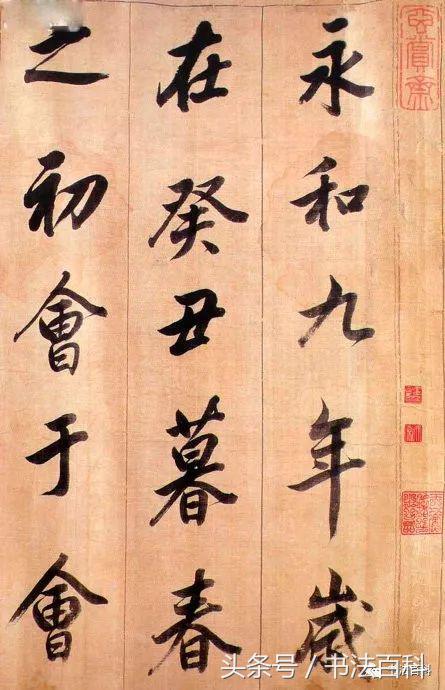 永和九年歲
在癸丑暮春
之初會于會
头条号／书法百科